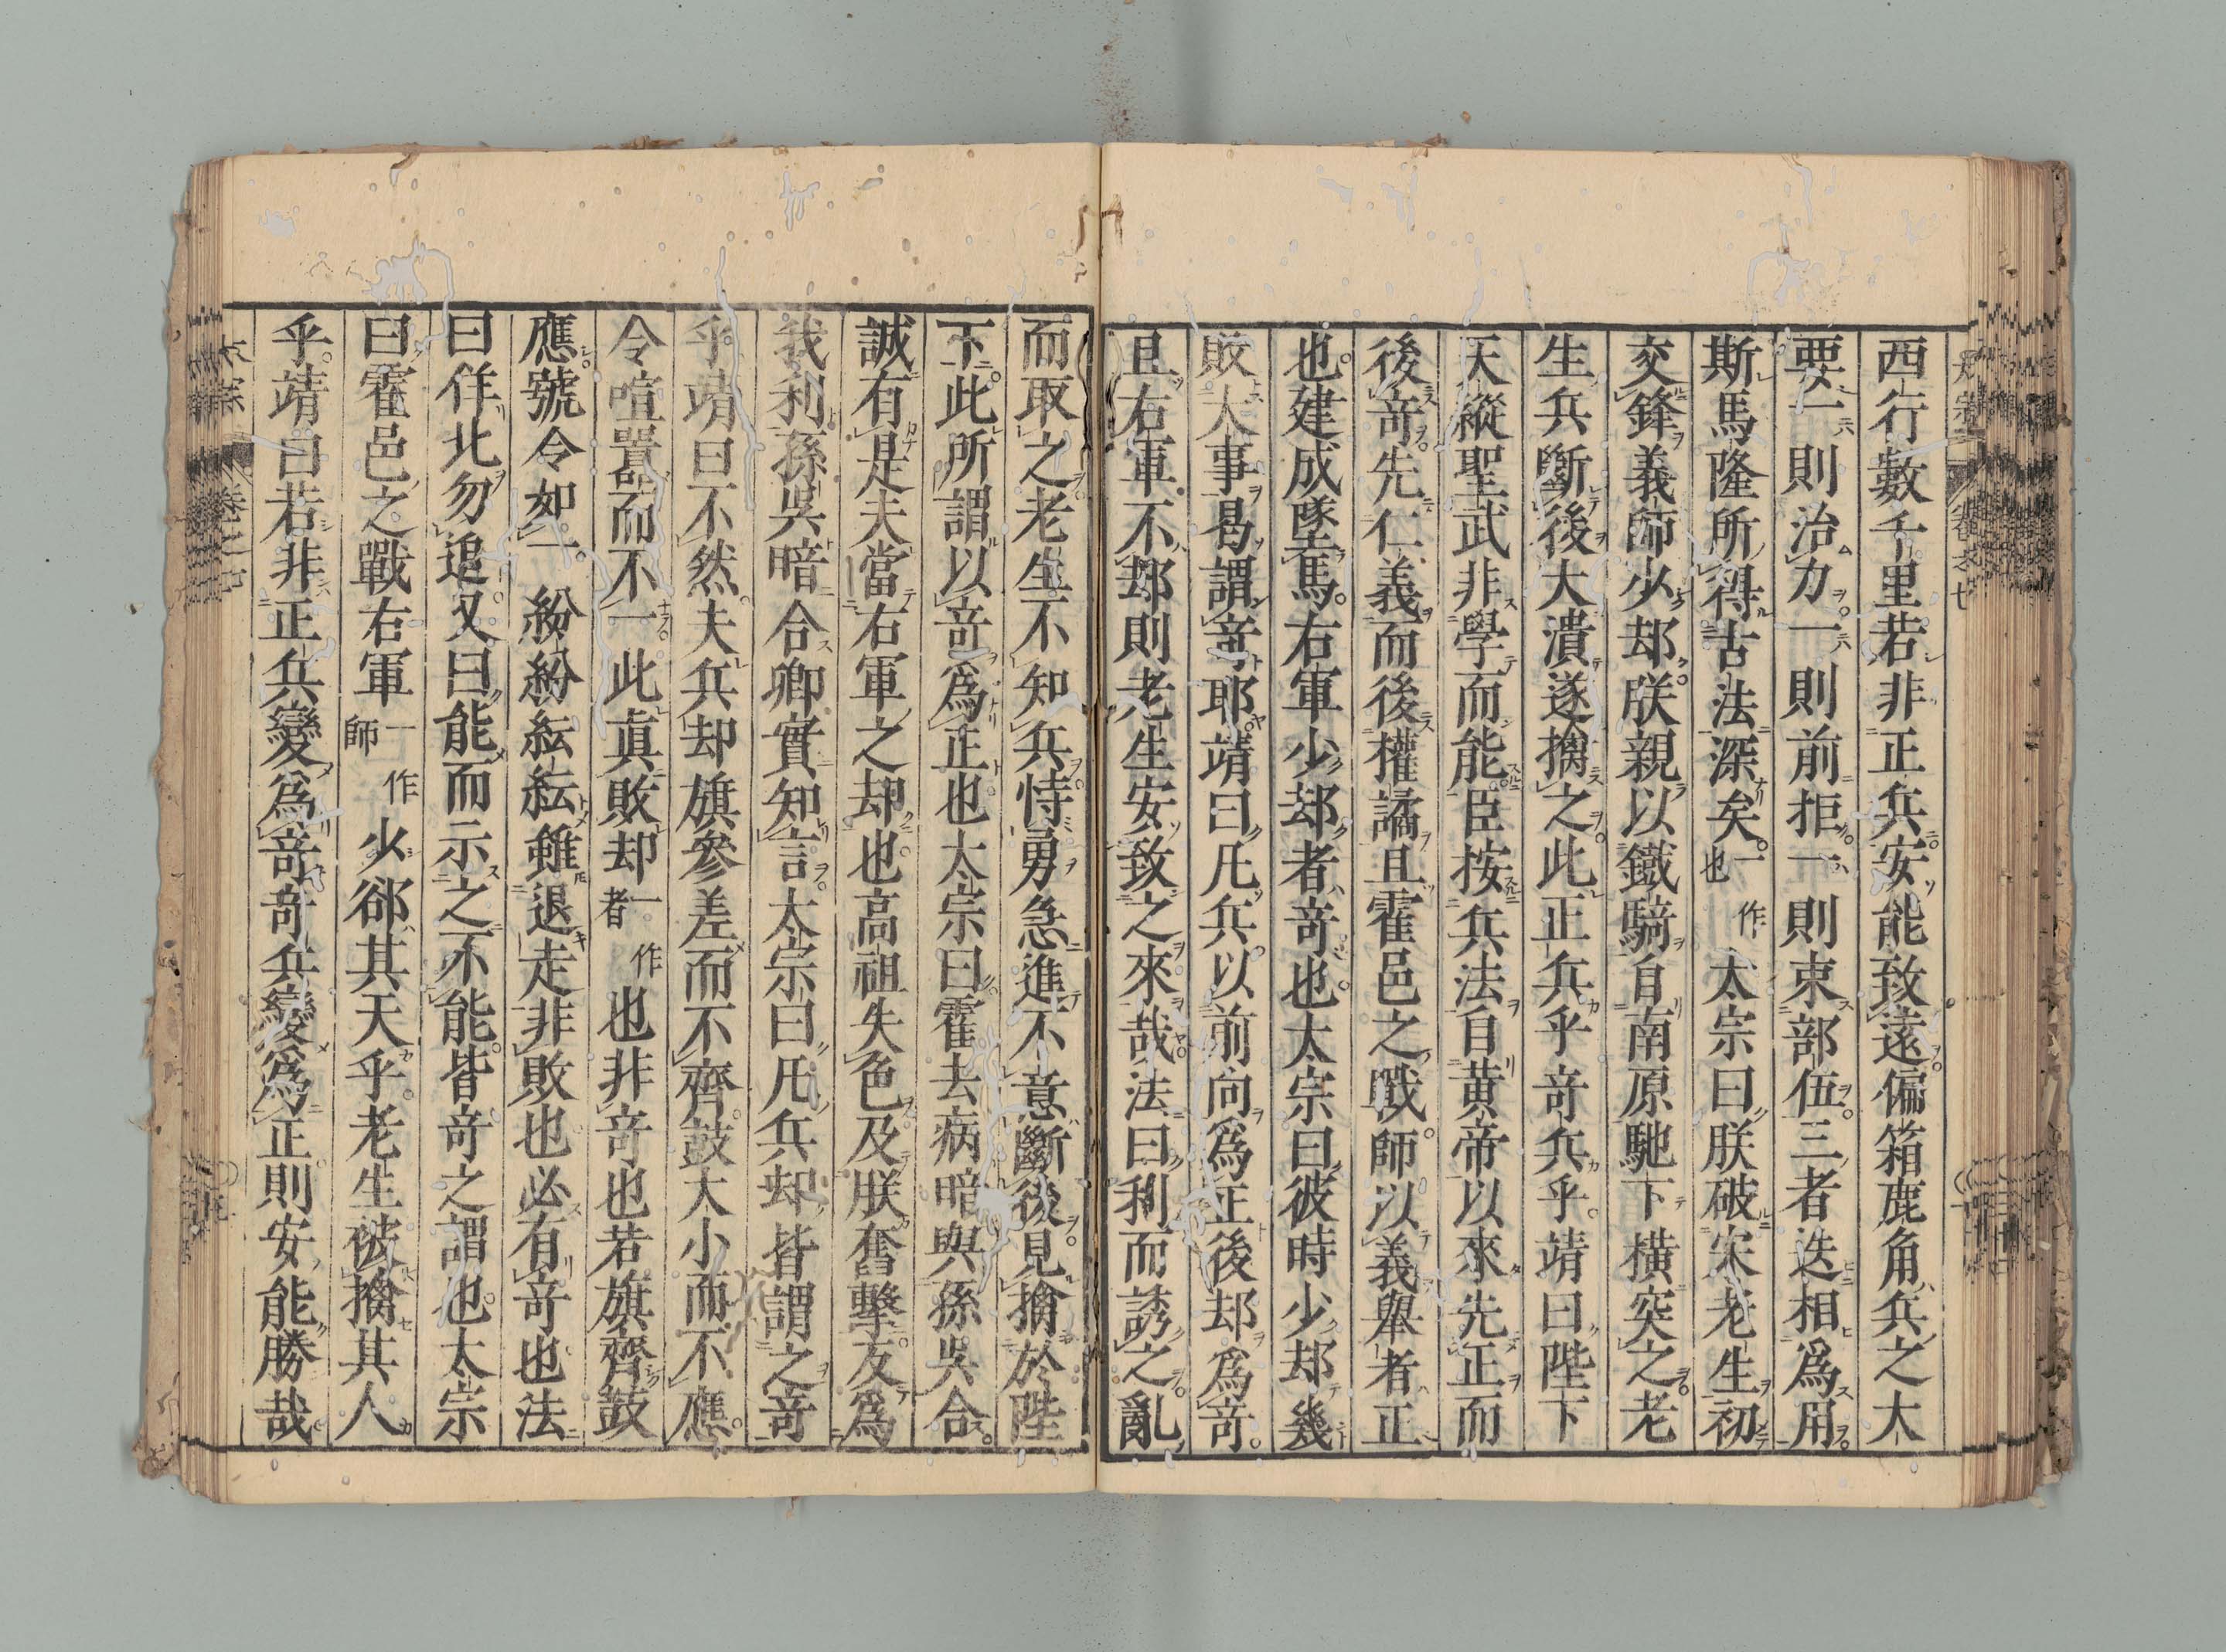 西行數千里若非正兵安能致遠偏箱鹿角兵之大
要一則治力一則前拒一則束部伍三者迭相爲用
斯馬隆所得古法深矣一作也太宗曰朕破宋老生初
交鋒義師少却朕親以鐵騎自南原馳下橫突之老
生兵斷後大潰遂擒之此正兵乎竒兵乎靖曰陛下
天縱聖武非學而能臣按兵法自黄帝以來先正而
後竒先仁義而後權譎且霍邑之戰師以義舉者正
也建成墜馬右軍少却者竒也太宗曰彼時少却幾
敗大事曷謂竒耶靖曰凡兵以前向爲正後却爲竒
且右軍不却則老生安致之來哉法曰利而誘之亂
而取之老生不知兵恃勇急進不意斷後見擒於陛
下此所謂以竒爲正也太宗曰霍去病暗與孫吳合
誠有是夫當右軍之却也高祖失色及朕奮擊反爲
我利孫吳暗合卿實知言太宗曰凡兵却皆謂之竒
乎靖曰不然夫兵却旗參差而不齊鼓大小而不應
令喧嚣而不一此真敗却一作者也非竒也若旗齊鼓
應號令如一紛紛紜紜雖退走非敗也必有竒也法
曰佯北勿追又曰能而示之不能皆竒之謂也太宗
曰霍邑之戰右軍一作師少郤其天乎老生被擒其人
乎靖曰若非正兵變爲竒竒兵變爲正則安能勝哉